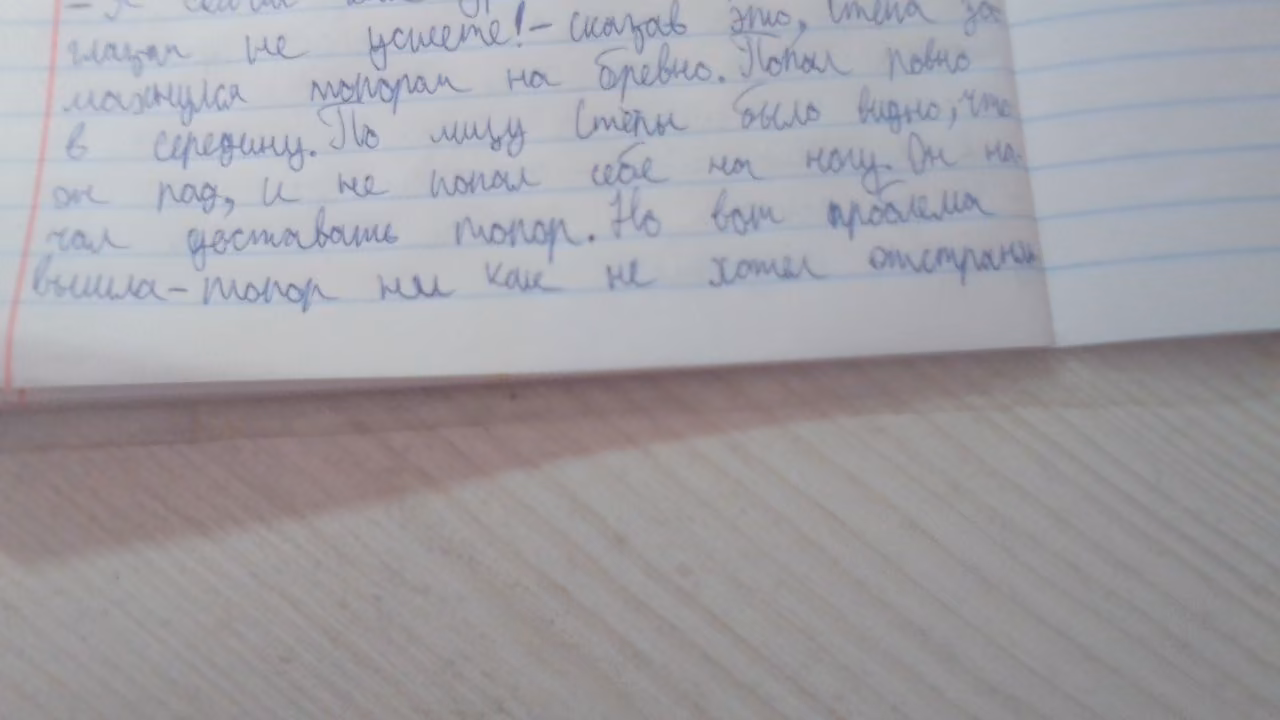 - Я
глазам не успеете! - сказав это, Стёпа за
махнулся топорам на бревно. Попал ровно
в середину. По лицу Стёпы было видно, что
он рад, и не попал себе на ногу. Он на
чал доставать топор. Но вот проблема
вышла - топор ни как не хотел отстрани